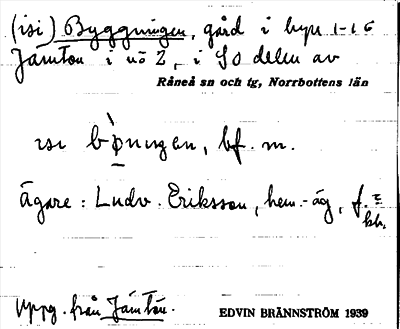 (isi) Byggningen, gård i byn 1-16
Jämtön i nö 2, i SO delen av
Råneå sn och tg, Norrbottens län
ısı bỳnıŋen, bf. m.
ägare: Ludv. Eriksson, hem.-äg, f.
kh.
Uppg. från Jämtön.
EDVIN BRÄNNSTRÖM 1939